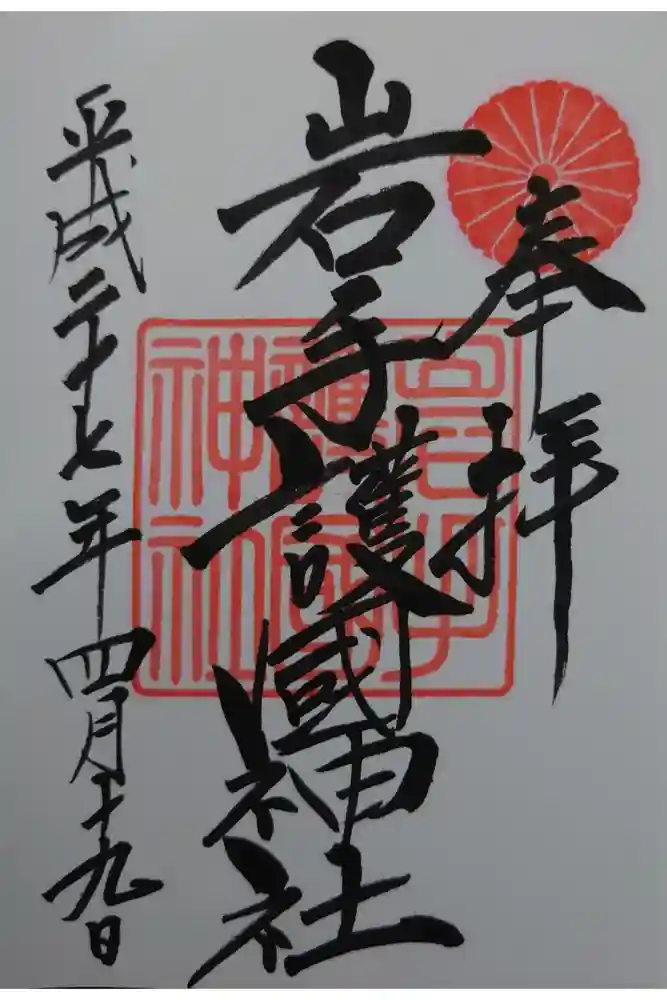 奉拝
岩手護國神社
岩手護國神社
平成二十七年四月十九日